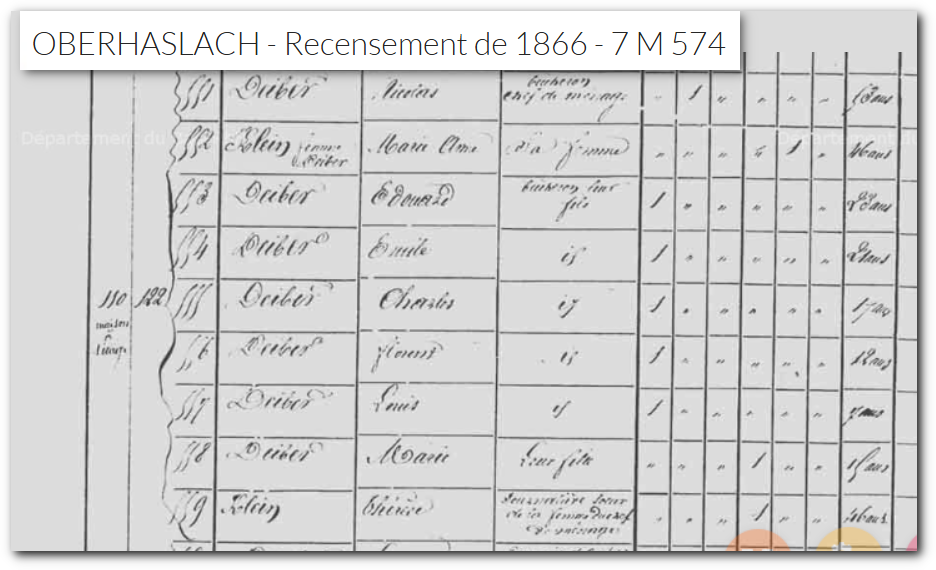 OBERHASLACH - Recensement de 1866 - 7 M 574
551 Deiber Nicolas bucheron chef de ménage " 1 " " " " 53 ans
Département du
552 Klein femme Deiber Marie Anne sa femme " " " " 1 " 46 ans
553 Deiber Edouard bucheron leur fils 1 " " " " " 23 ans
554 Deiber Emile id 1 " " " " " 21 ans
110 122 555 Deiber Charles id 1 " " " " " 17 ans
maison
1 étage
556 Deiber florent id 1 " " " " " 12 ans
557 Deiber Louis id 1 " " " " " ans
558 Deiber Marie Leur fille " " " 1 " " 15 ans
559 Klein thérèse soeur de la femme du chef de ménage " " " 1 " " 46 ans